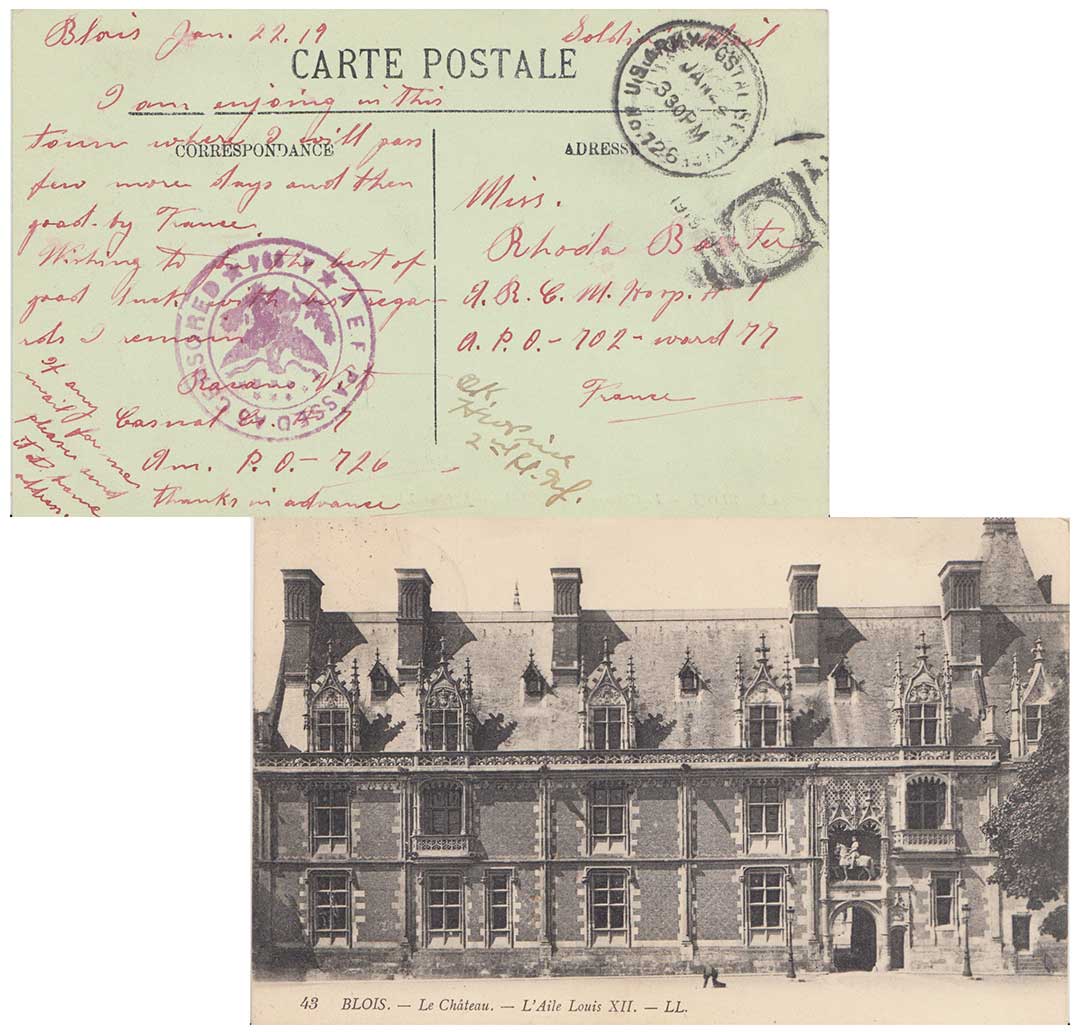 Blois Jan. 22. 19
Soldier's Mail
CARTE POSTALE
CORRESPONDANCE
ADRESSE
I am enjoing in this
town where I will pass
few more days and then
good-by France.
Wishing to you the best of
good luck with best rega-
rds I remain
Casual Co.
Am. P. O. - 726
thanks in advance
If any
mail for me
please send
it at home
address.
Miss.
Rhoda
A. R. C. M.
A. P. O. - 702 - ward 77
France
OK
2nd Lt. Inf.
U.S. ARMY POSTAL SERVICE
No. 726
JAN 22
3 30 PM
1919
A.E.F. PASSED AS CENSORED
43 BLOIS. — Le Château. — L'Aile Louis XII. — LL.